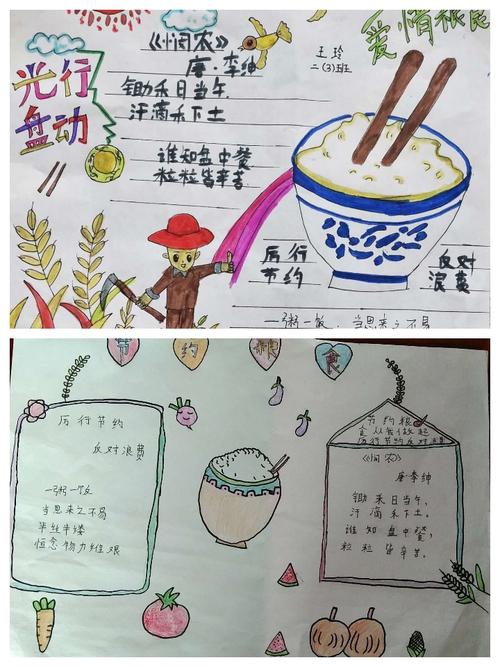 光行
盘动
《悯农》
唐·李绅
锄禾日当午
汗滴禾下土
谁知盘中餐
粒粒皆辛苦
爱惜粮食
王玲
二(3)班
厉行
节约
反对
浪费
一粥一饭,当思来之不易
节约粮食
厉行节约
反对浪费
一粥一饭
当思来之不易
半丝半缕
恒念物力维艰
节约粮
从我做起
厉行节约反对
《悯农》
唐·李绅
锄禾日当午,
汗滴禾下土。
谁知盘中餐,
粒粒皆辛苦。